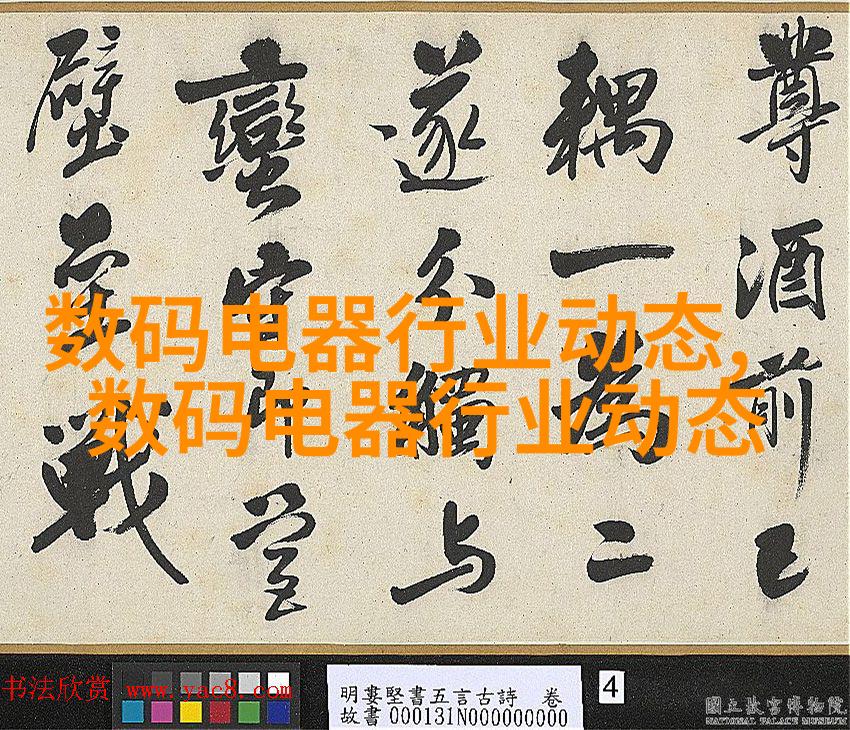 尊酒前已
耦一為二
遂分觸与
蠻
壁壘戰
数码电器行业动态,
数码电器行业动态
书法欣赏 www.yac8.com
明婁堅書五言古詩 卷
故書000131N000000000
4
國立故宮博物院
NATIONAL PALACE MUSEUM